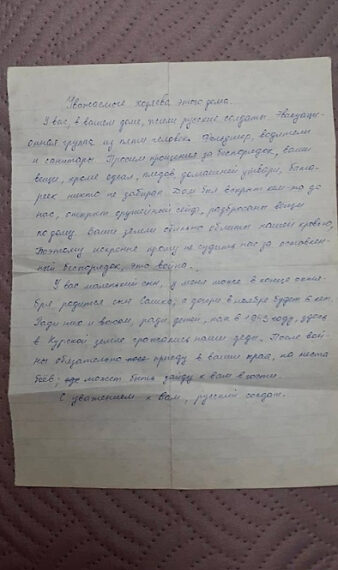 Уважаемые хозяева этого дома.
У вас, в вашем доме, жили русские солдаты. Эвакуаци-
онная группа из пяти человек. Фельдшер, водители
и санитары. Просим прощения за беспорядок, ваши
вещи, кроме одеял, пледов, домашней утвари, бата-
реек никто не забирал. Дом был вскрыт кем-то до
нас, открыт оружейный сейф, разбросаны вещи
по дому. Ваша земля обильно облита нашей кровью,
Поэтому искренне прошу не судить нас за оставлен-
ный беспорядок, это война.
У вас маленький сын, у меня тоже в конце октя-
бря родится сын Сашка, а дочери в ноябре будет 6 лет.
Ради что и воюем, ради детей, как в 1943 году, здесь
в Курской земле сражались наши деды. После вой-
ны обязательно приеду в ваши края, на места
боёв, может быть зайду к вам в гости.
С уважением к вам, русский солдат.